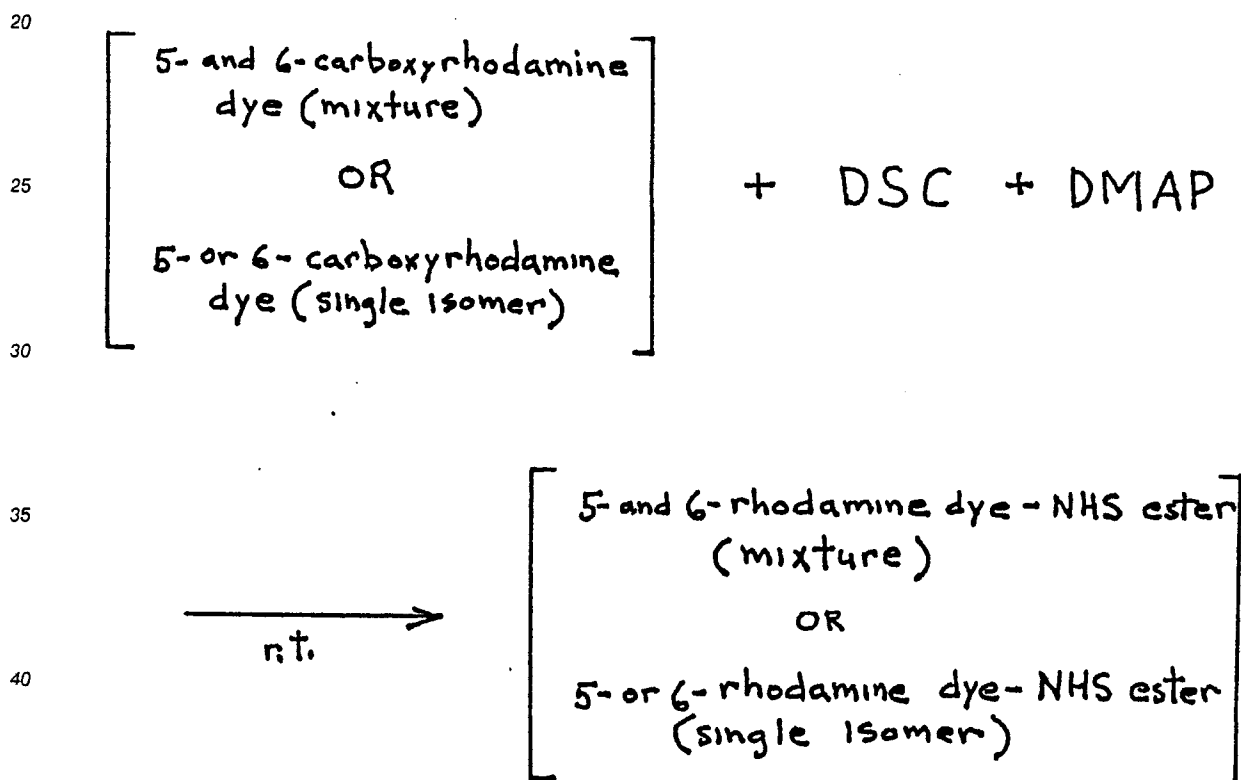 20
5- and 6-carboxyrhodamine
dye (mixture)
OR
25
+ DSC + DMAP
5- or 6-carboxyrhodamine
dye (single isomer)
30
35
5- and 6-rhodamine dye-NHS ester
(mixture)
r.t.
OR
40
5- or 6-rhodamine dye-NHS ester
(single isomer)